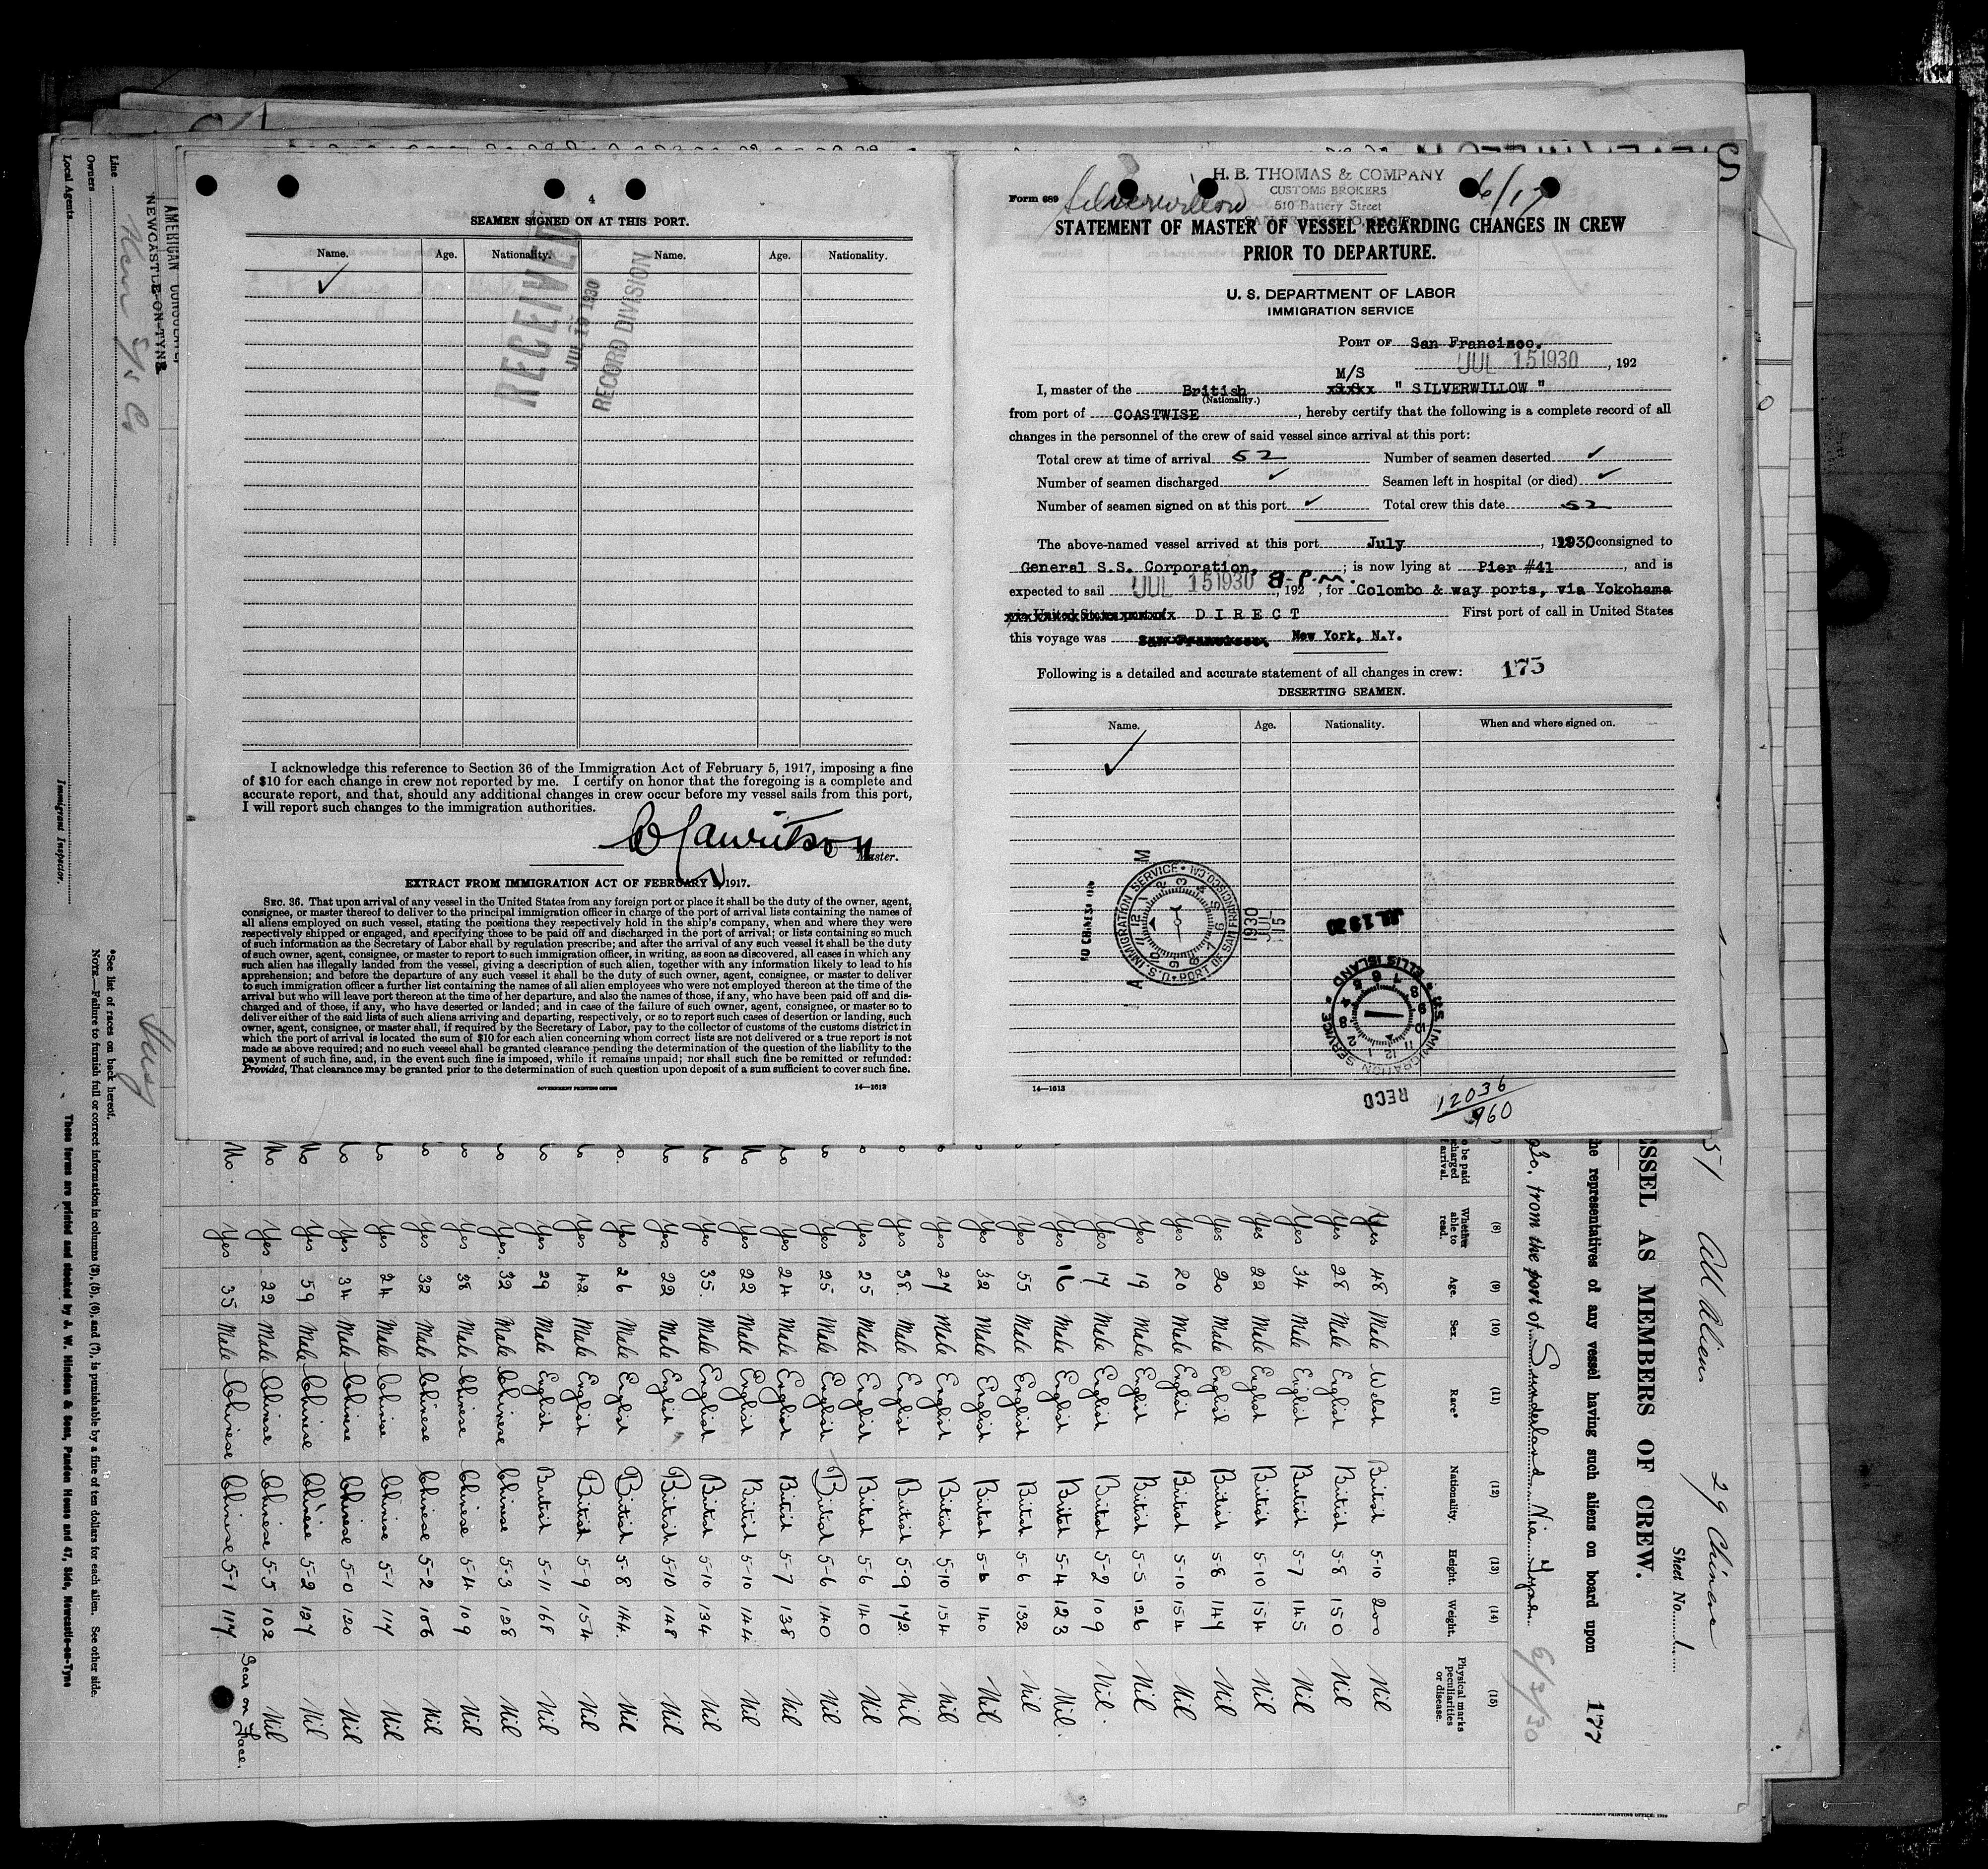 4
SEAMEN SIGNED ON AT THIS PORT.
Name. Age. Nationality. Name. Age. Nationality.
RECEIVED
1930
RECORD DIVISION
I acknowledge this reference to Section 36 of the Immigration Act of February 5, 1917, imposing a fine
of $10 for each change in crew not reported by me. I certify on honor that the foregoing is a complete and
accurate report, and that, should any additional changes in crew occur before my vessel sails from this port,
I will report such changes to the immigration authorities.
Master.
EXTRACT FROM IMMIGRATION ACT OF FEBRUARY 5, 1917.
SEC. 36. That upon arrival of any vessel in the United States from any foreign port or place it shall be the duty of the owner, agent,
consignee, or master thereof to deliver to the principal immigration officer in charge of the port of arrival lists containing the names of
all aliens employed on such vessel, stating the positions they respectively hold in the ship's company, when and where they were
respectively shipped or engaged, and specifying those to be paid off and discharged in the port of arrival; or lists containing so much
of such information as the Secretary of Labor shall by regulation prescribe; and after the arrival of any such vessel it shall be the duty
of such owner, agent, consignee, or master to report to such immigration officer, in writing, as soon as discovered, all cases in which any
such alien has illegally landed from the vessel, giving a description of such alien, together with any information likely to lead to his
apprehension; and before the departure of any such vessel it shall be the duty of such owner, agent, consignee, or master to deliver
to such immigration officer a further list containing the names of all alien employees who were not employed thereon at the time of the
arrival but who will leave port thereon at the time of her departure, and also the names of those, if any, who have been paid off and dis-
charged and of those, if any, who have deserted or landed; and in case of the failure of such owner, agent, consignee, or master so to
deliver either of the said lists of such aliens arriving and departing, respectively, or so to report such cases of desertion or landing, such
owner, agent, consignee, or master shall, if required by the Secretary of Labor, pay to the collector of customs of the customs district in
which the port of arrival is located the sum of $10 for each alien concerning whom correct lists are not delivered or a true report is not
made as above required; and no such vessel shall be granted clearance pending the determination of the question of the liability to the
payment of such fine, and, in the event such fine is imposed, while it remains unpaid; nor shall such fine be remitted or refunded:
Provided, That clearance may be granted prior to the determination of such question upon deposit of a sum sufficient to cover such fine.
GOVERNMENT PRINTING OFFICE 14—1613
H. B. THOMAS & COMPANY
CUSTOMS BROKERS
510 Battery Street
Form 689 Silverwillow 6/17
STATEMENT OF MASTER OF VESSEL REGARDING CHANGES IN CREW
PRIOR TO DEPARTURE.
U. S. DEPARTMENT OF LABOR
IMMIGRATION SERVICE
PORT OF San Francisco.
JUL 15 1930, 192
M/S
I, master of the British " SILVERWILLOW "
(Nationality.)
from port of COASTWISE, hereby certify that the following is a complete record of all
changes in the personnel of the crew of said vessel since arrival at this port:
Total crew at time of arrival 52 Number of seamen deserted
Number of seamen discharged Seamen left in hospital (or died)
Number of seamen signed on at this port Total crew this date 52
The above-named vessel arrived at this port July, 1930 consigned to
General S.S. Corporation, ; is now lying at Pier #41, and is
expected to sail JUL 15 1930 8-P.m., 192 , for Colombo & way ports, via Yokohama
DIRECT First port of call in United States
this voyage was New York, N.Y.
Following is a detailed and accurate statement of all changes in crew: 175
DESERTING SEAMEN.
Name. Age. Nationality. When and where signed on.
U.S. IMMIGRATION SERVICE • PORT OF SAN FRANCISCO, CAL.
1930 JUL 15
U.S. IMMIGRATION SERVICE • ELLIS ISLAND
RECD
12036/960
14—1613
51 All Aliens 29 Chinese
Sheet No. 1
ESSEL AS MEMBERS OF CREW.
he representatives of any vessel having such aliens on board upon 177
from the port of Sunderland Via Tyne 6/3/30
o be paid
(8) Whether able to read. (9) Age. (10) Sex. (11) Race* (12) Nationality. (13) Height. (14) Weight. (15) Physical marks peculiarities or disease.
Yes 48 Male Welsh British 5-10 200 Nil
Yes 28 Male English British 5-8 150 Nil
Yes 34 Male English British 5-7 145 Nil
Yes 22 Male English British 5-10 154 Nil
Yes 20 Male English British 5-8 147 Nil
Yes 20 Male English British 5-10 154 Nil
Yes 19 Male English British 5-5 126 Nil
Yes 17 Male English British 5-2 109 Nil.
Yes 16 Male English British 5-4 123 Nil.
Yes 55 Male English British 5-6 132 Nil
Yes 32 Male English British 5-6 140 Nil.
Yes 27 Male English British 5-10 154 Nil
Yes 38 Male English British 5-9 172 Nil
Yes 25 Male English British 5-6 140 Nil
Yes 25 Male English British 5-6 140 Nil
Yes 24 Male English British 5-7 138 Nil
No Yes 22 Male English British 5-10 144 Nil
Yes 35 Male English British 5-10 134 Nil
Yes 22 Male English British 5-10 148 Nil
Yes 26 Male English British 5-8 144 Nil
Yes 42 Male English British 5-9 154 Nil
Yes 29 Male English British 5-11 168 Nil
Yes 32 Male Chinese Chinese 5-3 128 Nil
Yes 38 Male Chinese Chinese 5-4 109 Nil
Yes 32 Male Chinese Chinese 5-2 106 Nil
Yes 24 Male Chinese Chinese 5-1 117 Nil
Yes 34 Male Chinese Chinese 5-0 120 Nil
No Yes 59 Male Chinese Chinese 5-2 127 Nil
No Yes 22 Male Chinese Chinese 5-5 102 Nil
No. Yes 35 Male Chinese Chinese 5-1 117 Scar on Face.
AMERICAN CONSULATE
NEWCASTLE-ON-TYNE
Line
Owners
Local Agents
Immigrant Inspector.
*See list of races on back hereof.
NOTE.—Failure to furnish full or correct information in columns (3), (5), (6), and (7), is punishable by a fine of ten dollars for each alien. See other side.
These forms are printed and stocked by J. W. Hindson & Sons, Pandon House and 47, Side, Newcastle-on-Tyne